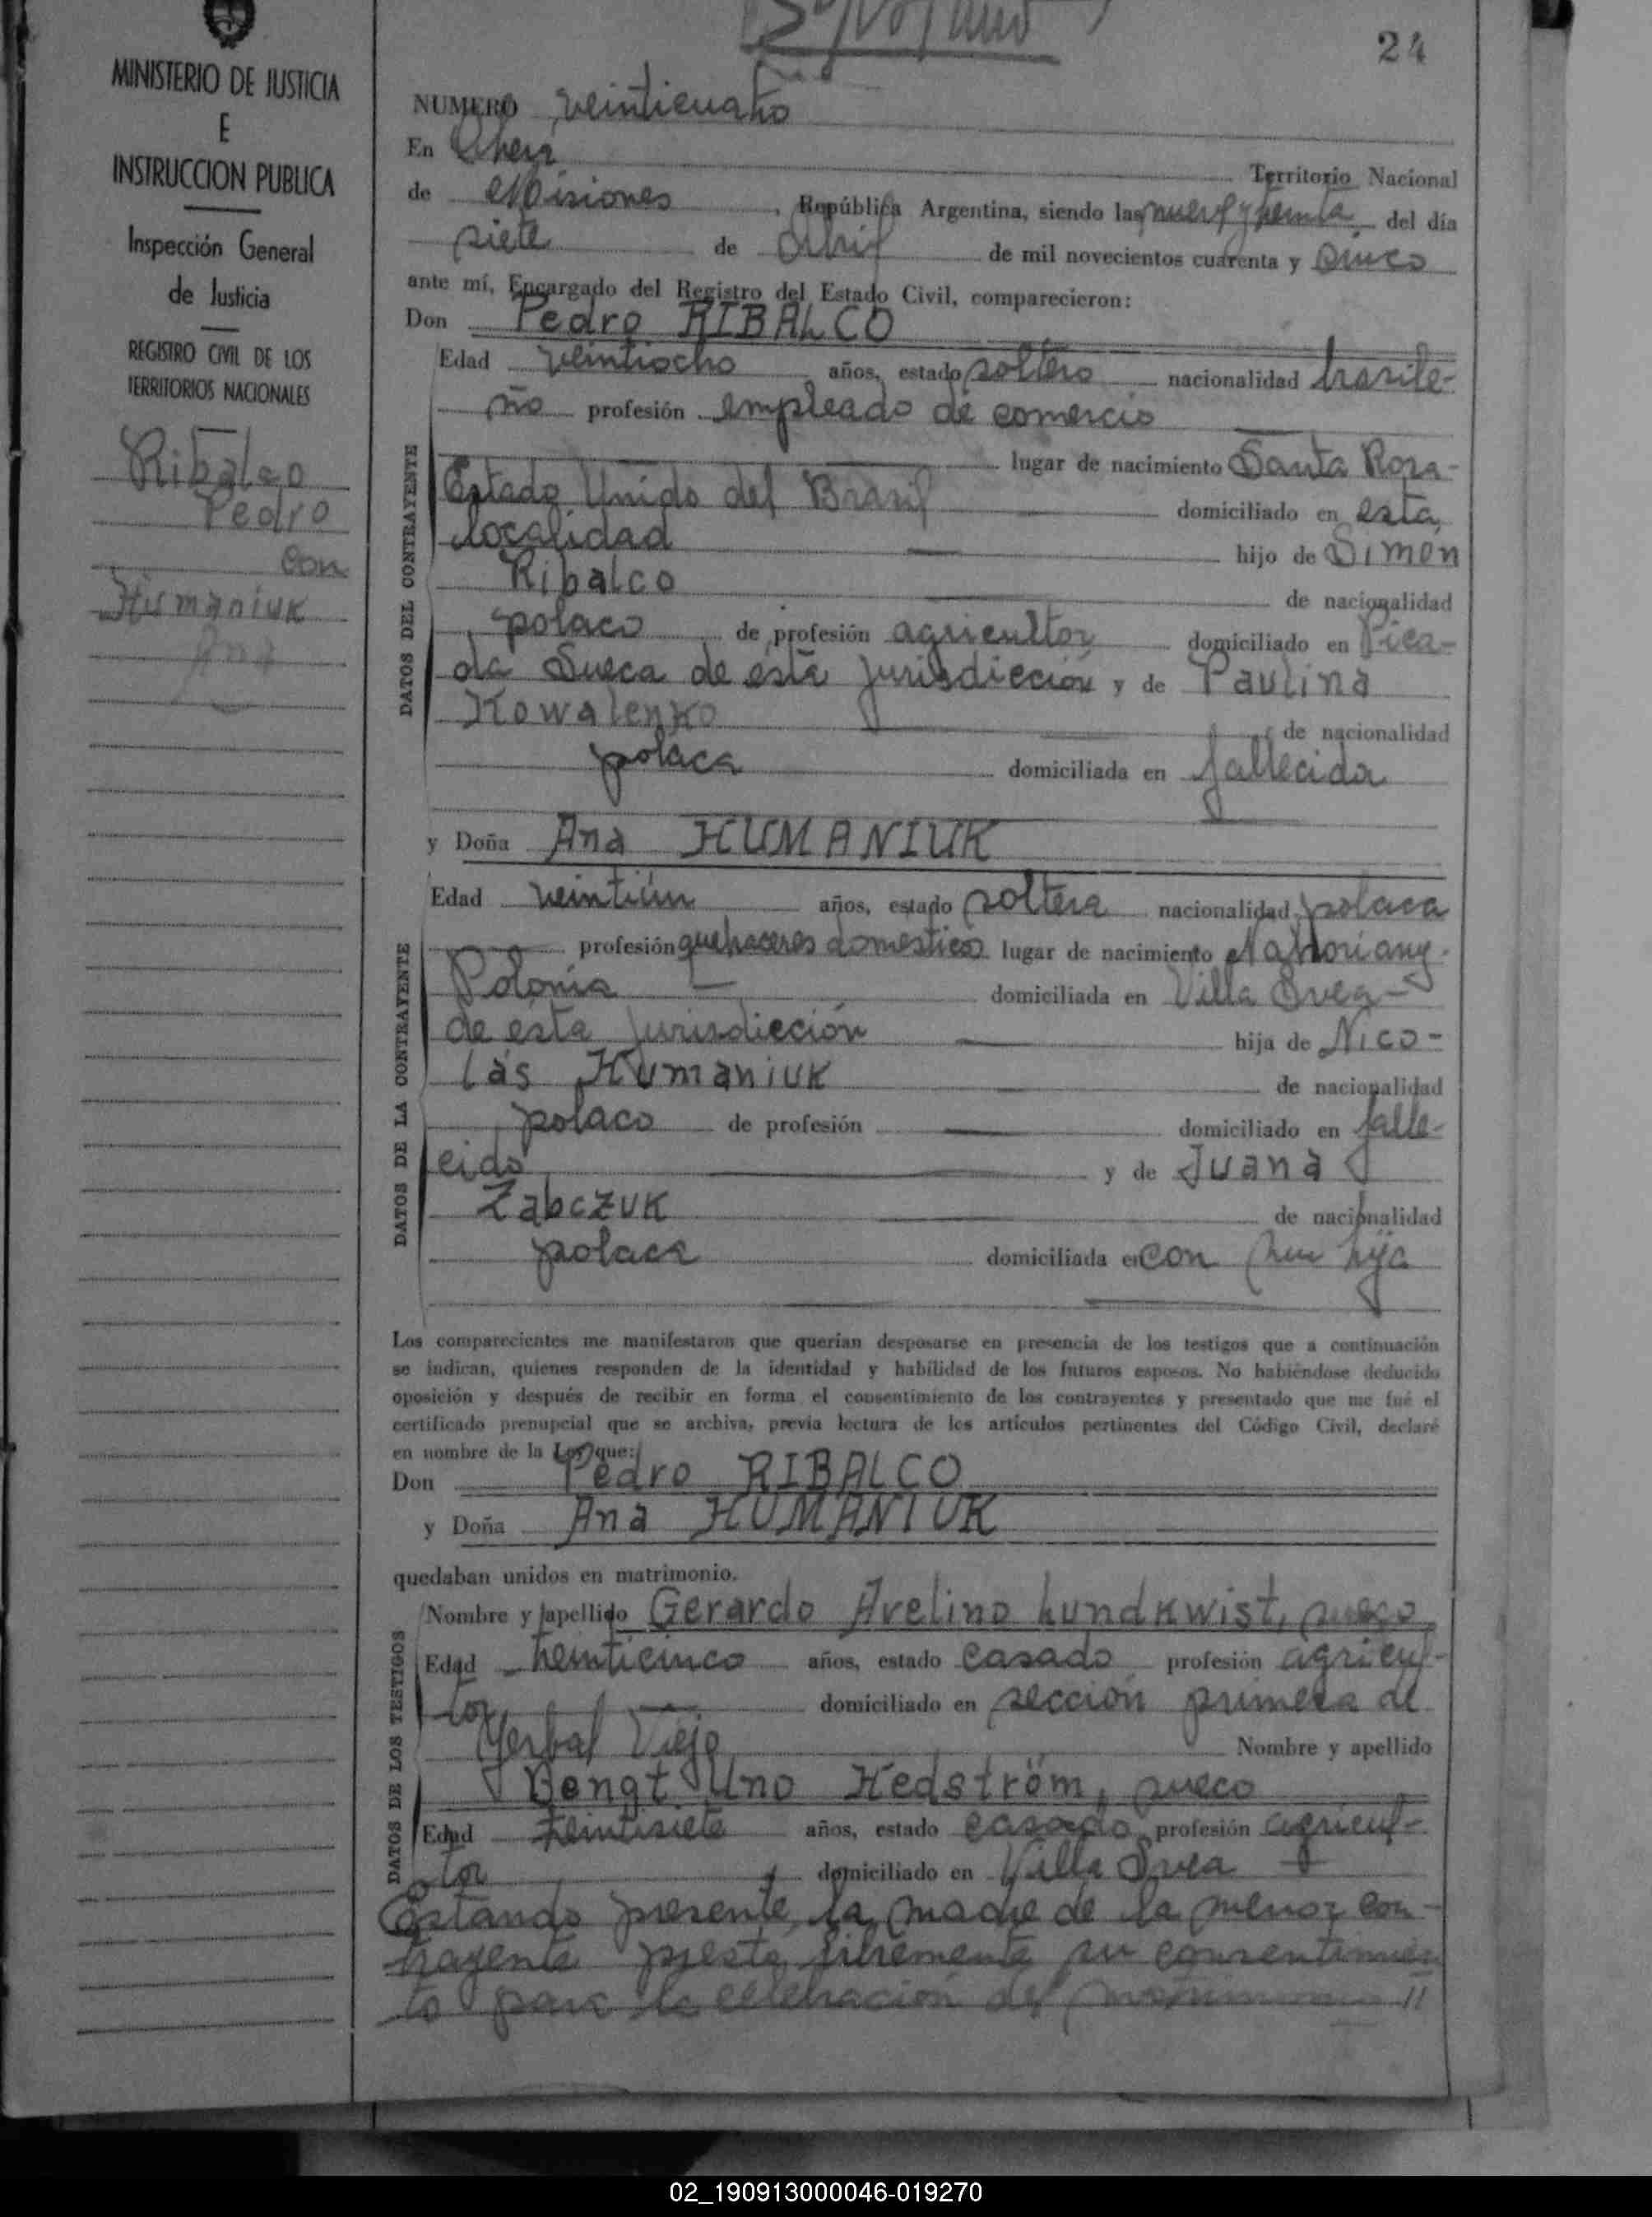 24
MINISTERIO DE JUSTICIA
E
INSTRUCCION PUBLICA
Inspección General
de Justicia
REGISTRO CIVIL DE LOS
TERRITORIOS NACIONALES
Ribalco
Pedro
con
Humaniuk
Ana
NUMERO veinticuatro
En Oberá Territorio Nacional
de Misiones, República Argentina, siendo las nueve y treinta del día
siete de Abril de mil novecientos cuarenta y cinco
ante mí, Encargado del Registro del Estado Civil, comparecieron:
Don Pedro RIBALCO
DATOS DEL CONTRAYENTE
Edad veintiocho años, estado soltero nacionalidad brasile-
ño profesión empleado de comercio
lugar de nacimiento Santa Rosa-
Estado Unido del Brasil domiciliado en esta
localidad hijo de Simón
Ribalco de nacionalidad
polaco de profesión agricultor domiciliado en Pica-
da Sueca de ésta jurisdicción y de Paulina
Kowalenko de nacionalidad
polaca domiciliada en fallecida
y Doña Ana HUMANIUK
DATOS DE LA CONTRAYENTE
Edad veintiún años, estado soltera nacionalidad polaca
profesión quehaceres domestico lugar de nacimiento
Polonia domiciliada en Villa Svea-
de ésta jurisdicción hija de Nico-
lás Humaniuk de nacionalidad
polaco de profesión domiciliado en falle-
cido y de Juana
Zabczuk de nacionalidad
polaca domiciliada en con su hija
Los comparecientes me manifestaron que querían desposarse en presencia de los testigos que a continuación
se indican, quienes responden de la identidad y habilidad de los futuros esposos. No habiéndose deducido
oposición y después de recibir en forma el consentimiento de los contrayentes y presentado que me fué el
certificado prenupcial que se archiva, previa lectura de los artículos pertinentes del Código Civil, declaré
en nombre de la Ley que:
Don Pedro RIBALCO
y Doña Ana HUMANIUK
quedaban unidos en matrimonio.
DATOS DE LOS TESTIGOS
Nombre y apellido Gerardo Avelino Lundkwist, sueco
Edad treinticinco años, estado casado profesión agricul-
tor domiciliado en sección primera de
Yerbal Viejo Nombre y apellido
Bengt Uno Hedström, sueco
Edad treintisiete años, estado casado profesión agricul-
tor domiciliado en Villa Svea
Estando presente la madre de la menor con-
trayente presta libremente su consentimien
to para la celebración del matrimonio //
02_190913000046-019270